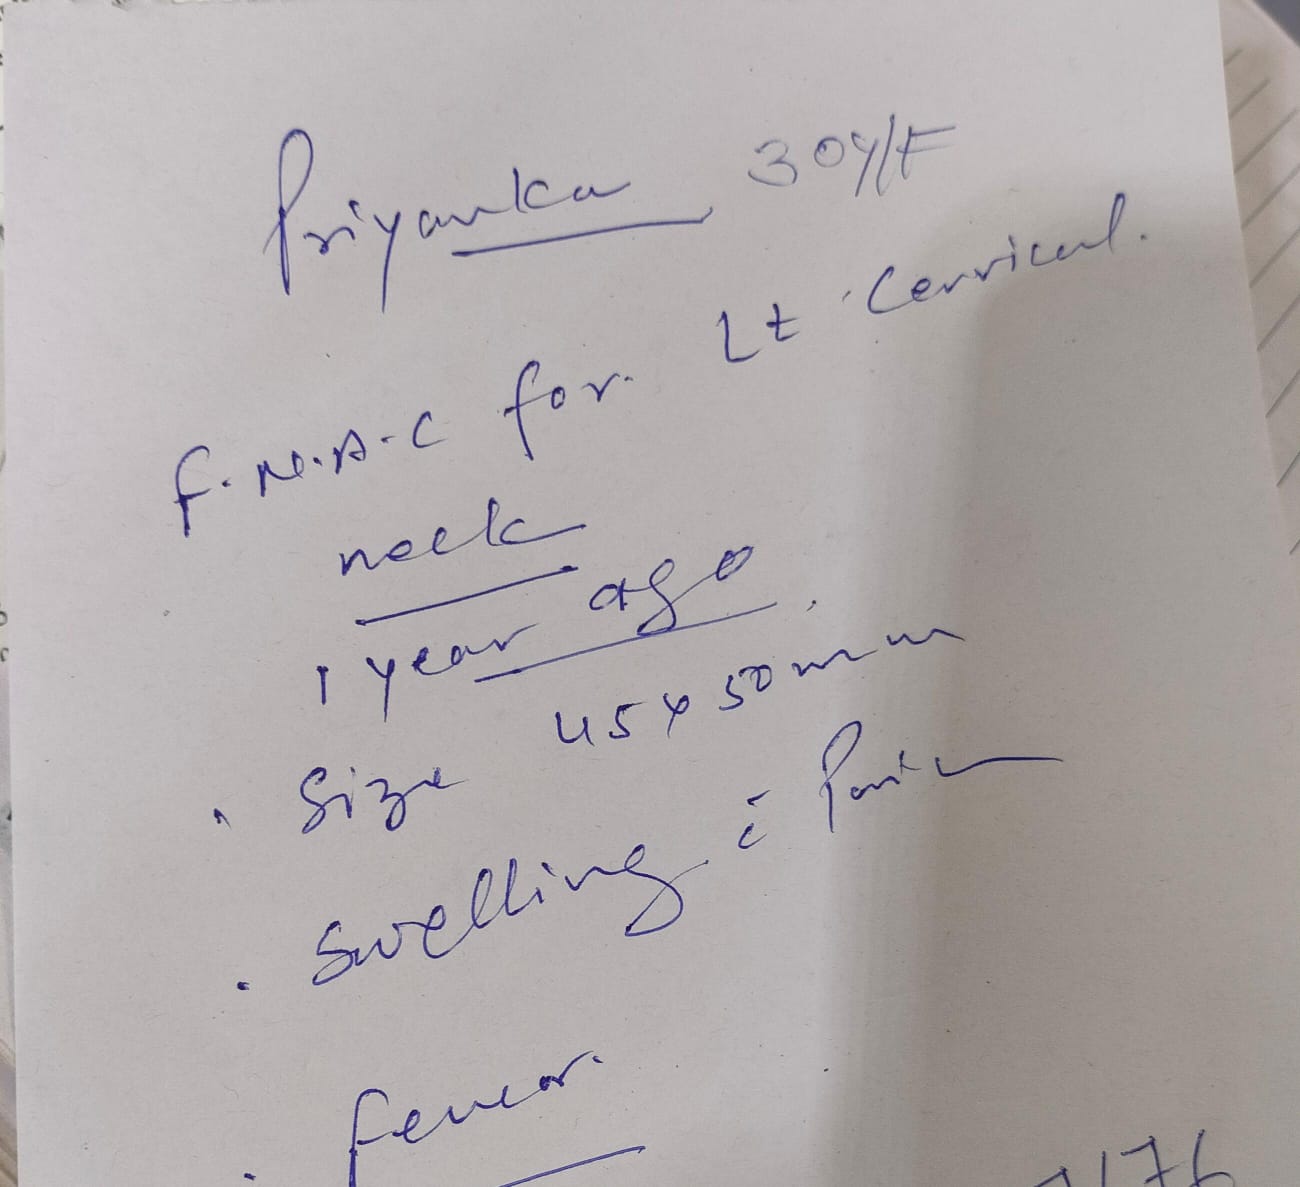 Priyanka 30y/F
F.N.A.C for. Lt Cervical.
neck
1 year ago.
• Size 45x50mm
• Swelling c̄ Pain
• fever.